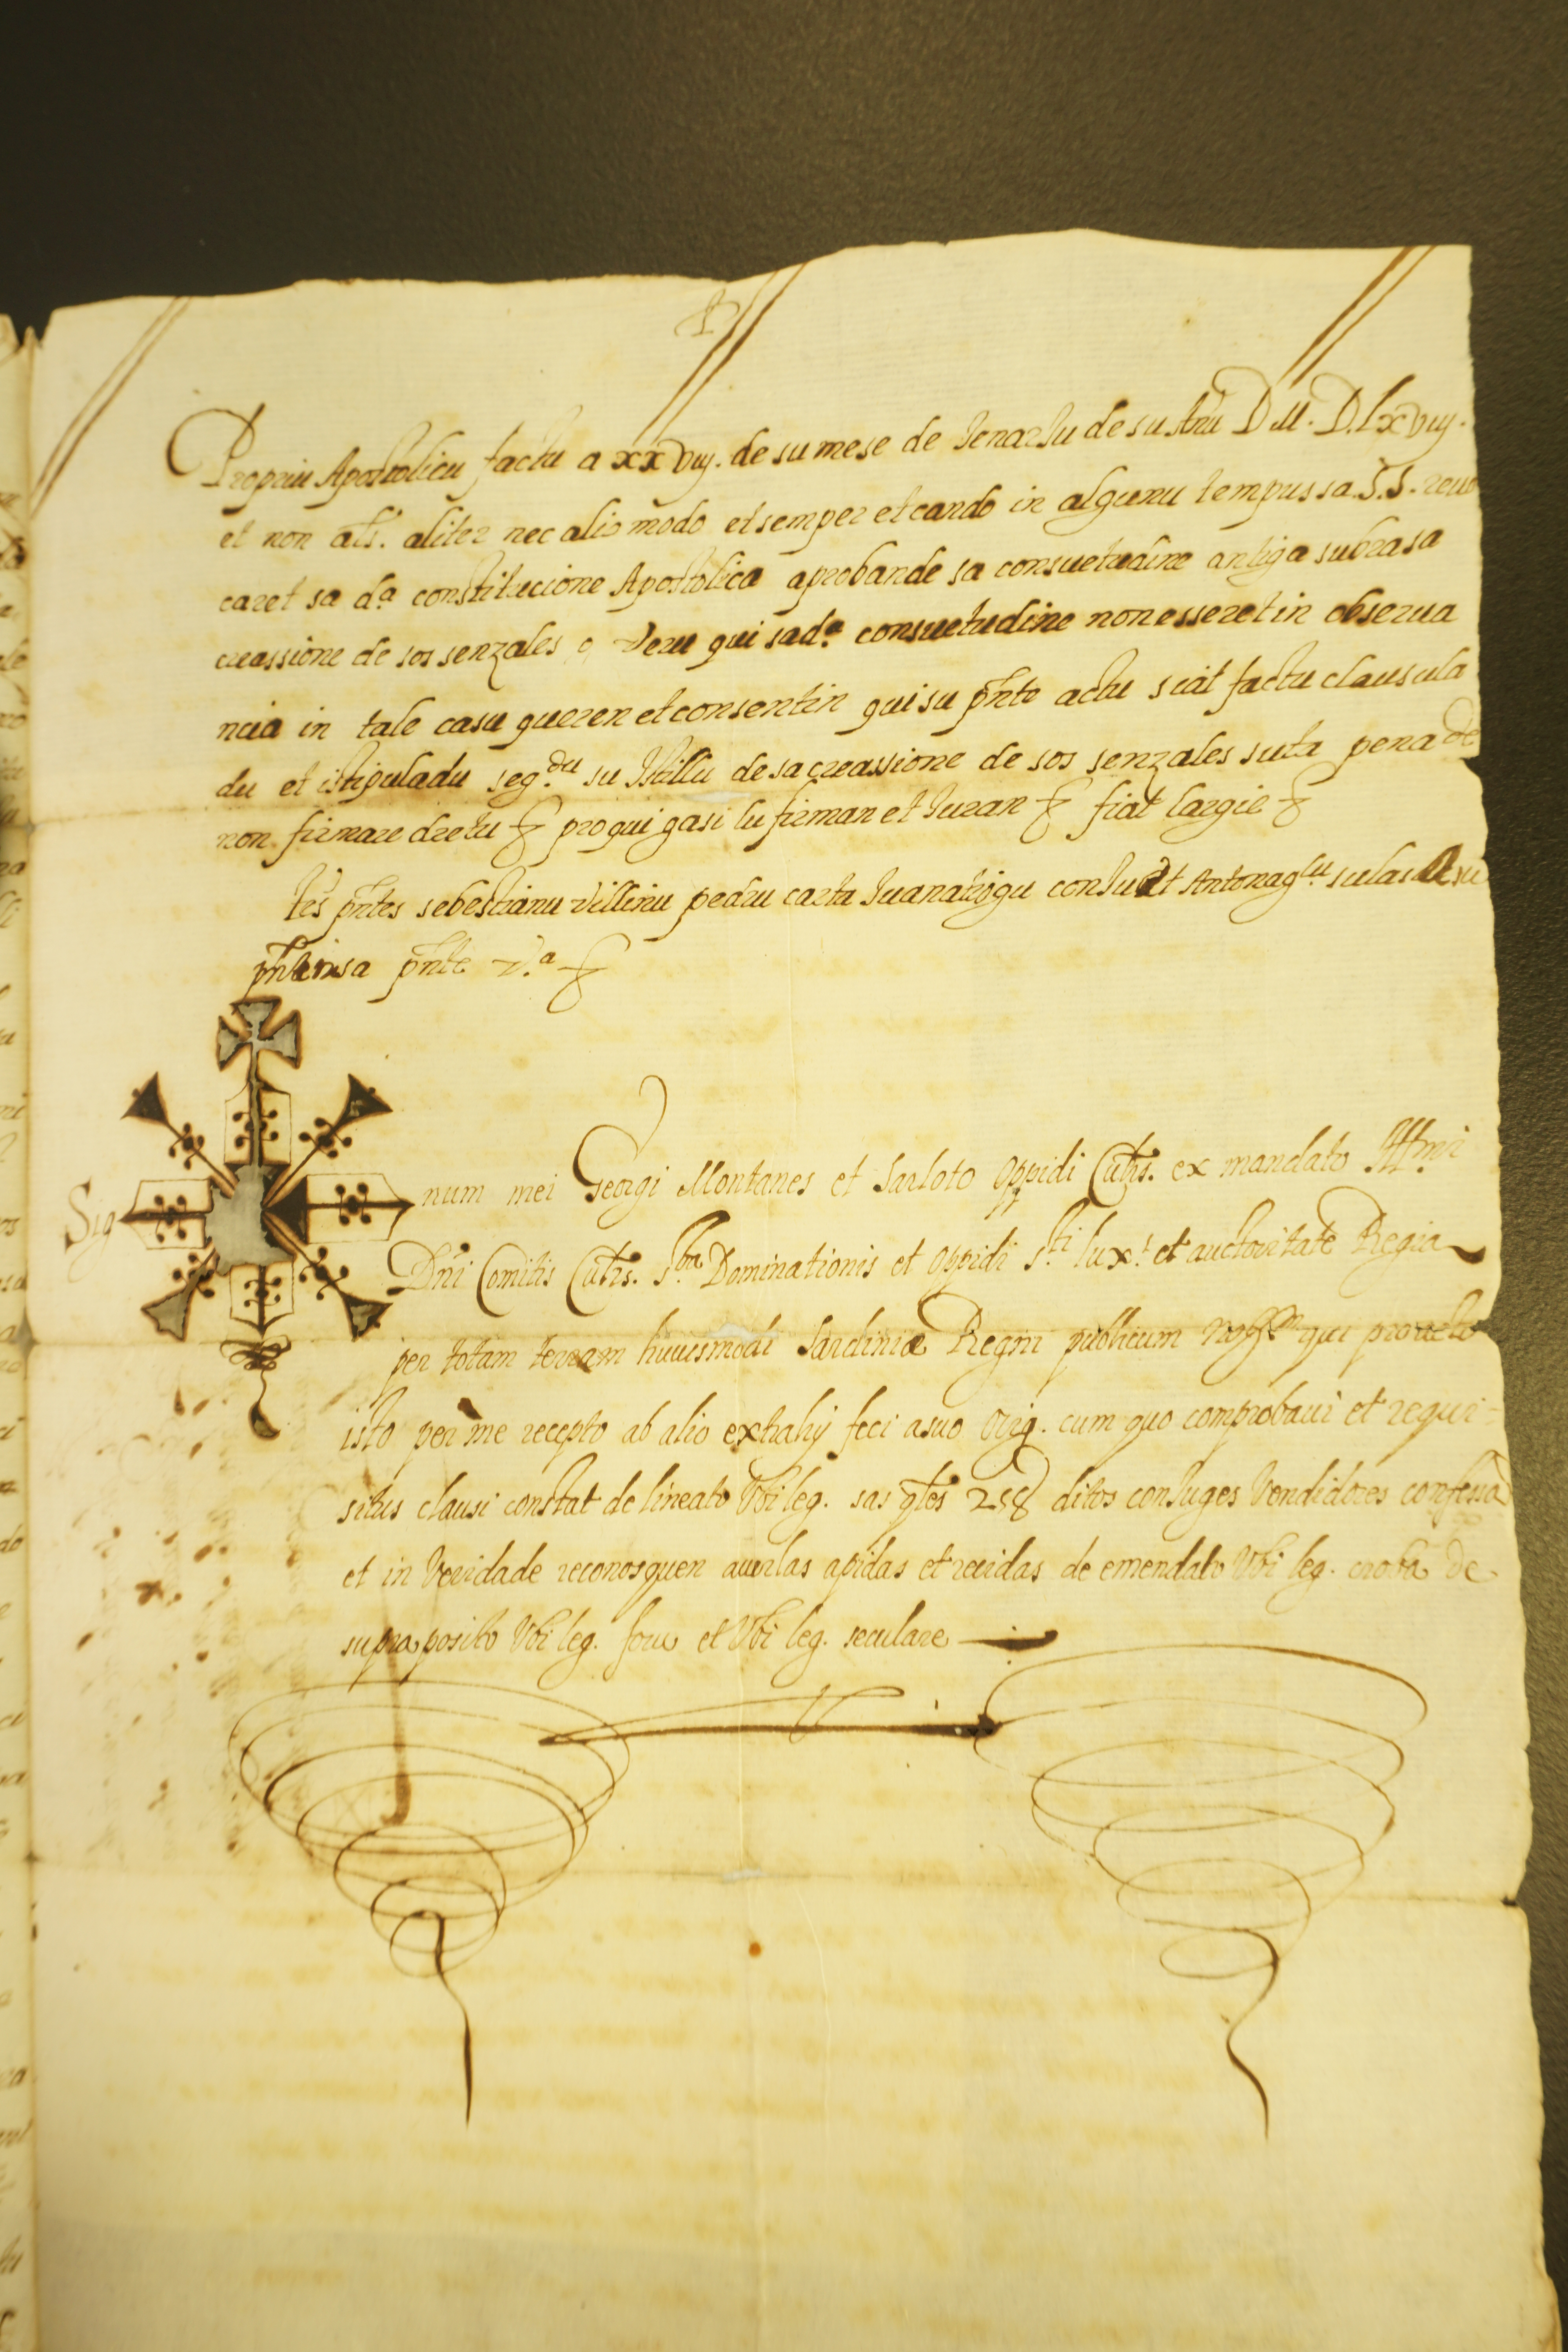 Propriu Apostolicu factu a xxviij. de su mese de Jenarju de su Añu D M. D. Lxviij.
et non als. aliter nec alio modo et semper et cando in algunu tempus sa S.S. reuo
caret sa d.a constitucione Apostolica aprobande sa consuetudine antiga subra sa
creassione de sos senzales o veru qui sa d.a consuetudine non esseret in obserua
ncia in tale casu queren et consentin qui su pñte actu siat factu clausula
du et istipuladu seg.du su istillu de sa creassione de sos senzales suta pena de
non firmare dretu & pro qui gasi lu firman et Juran & fiat largie &
tes pñtes sebestianu villinu pedru carta Juanatzigu et Anton
pñte v.a &
Signum mei Georgi Montanes et Sarloto Oppidi Cutrs. ex mandato Illmi
Dñi Comitis Cutrs. Dominationis et Oppidi S.ti lux.i et auctoritate Regia
per totam terram huiusmodi Sardiniæ Regni publicum qui pro
isto per me recepto ab alio extrahi feci a suo Orig. cum quo comprobaui et requi-
situs clausi constat de lineato Vbi leg. sas 258 ditos conjuges Vendidores confessa
et in Veridade reconosquen auerlas apidas et reuidas de emendato Vbi leg. de
supra posito Vbi leg. foru et Vbi leg. seculare